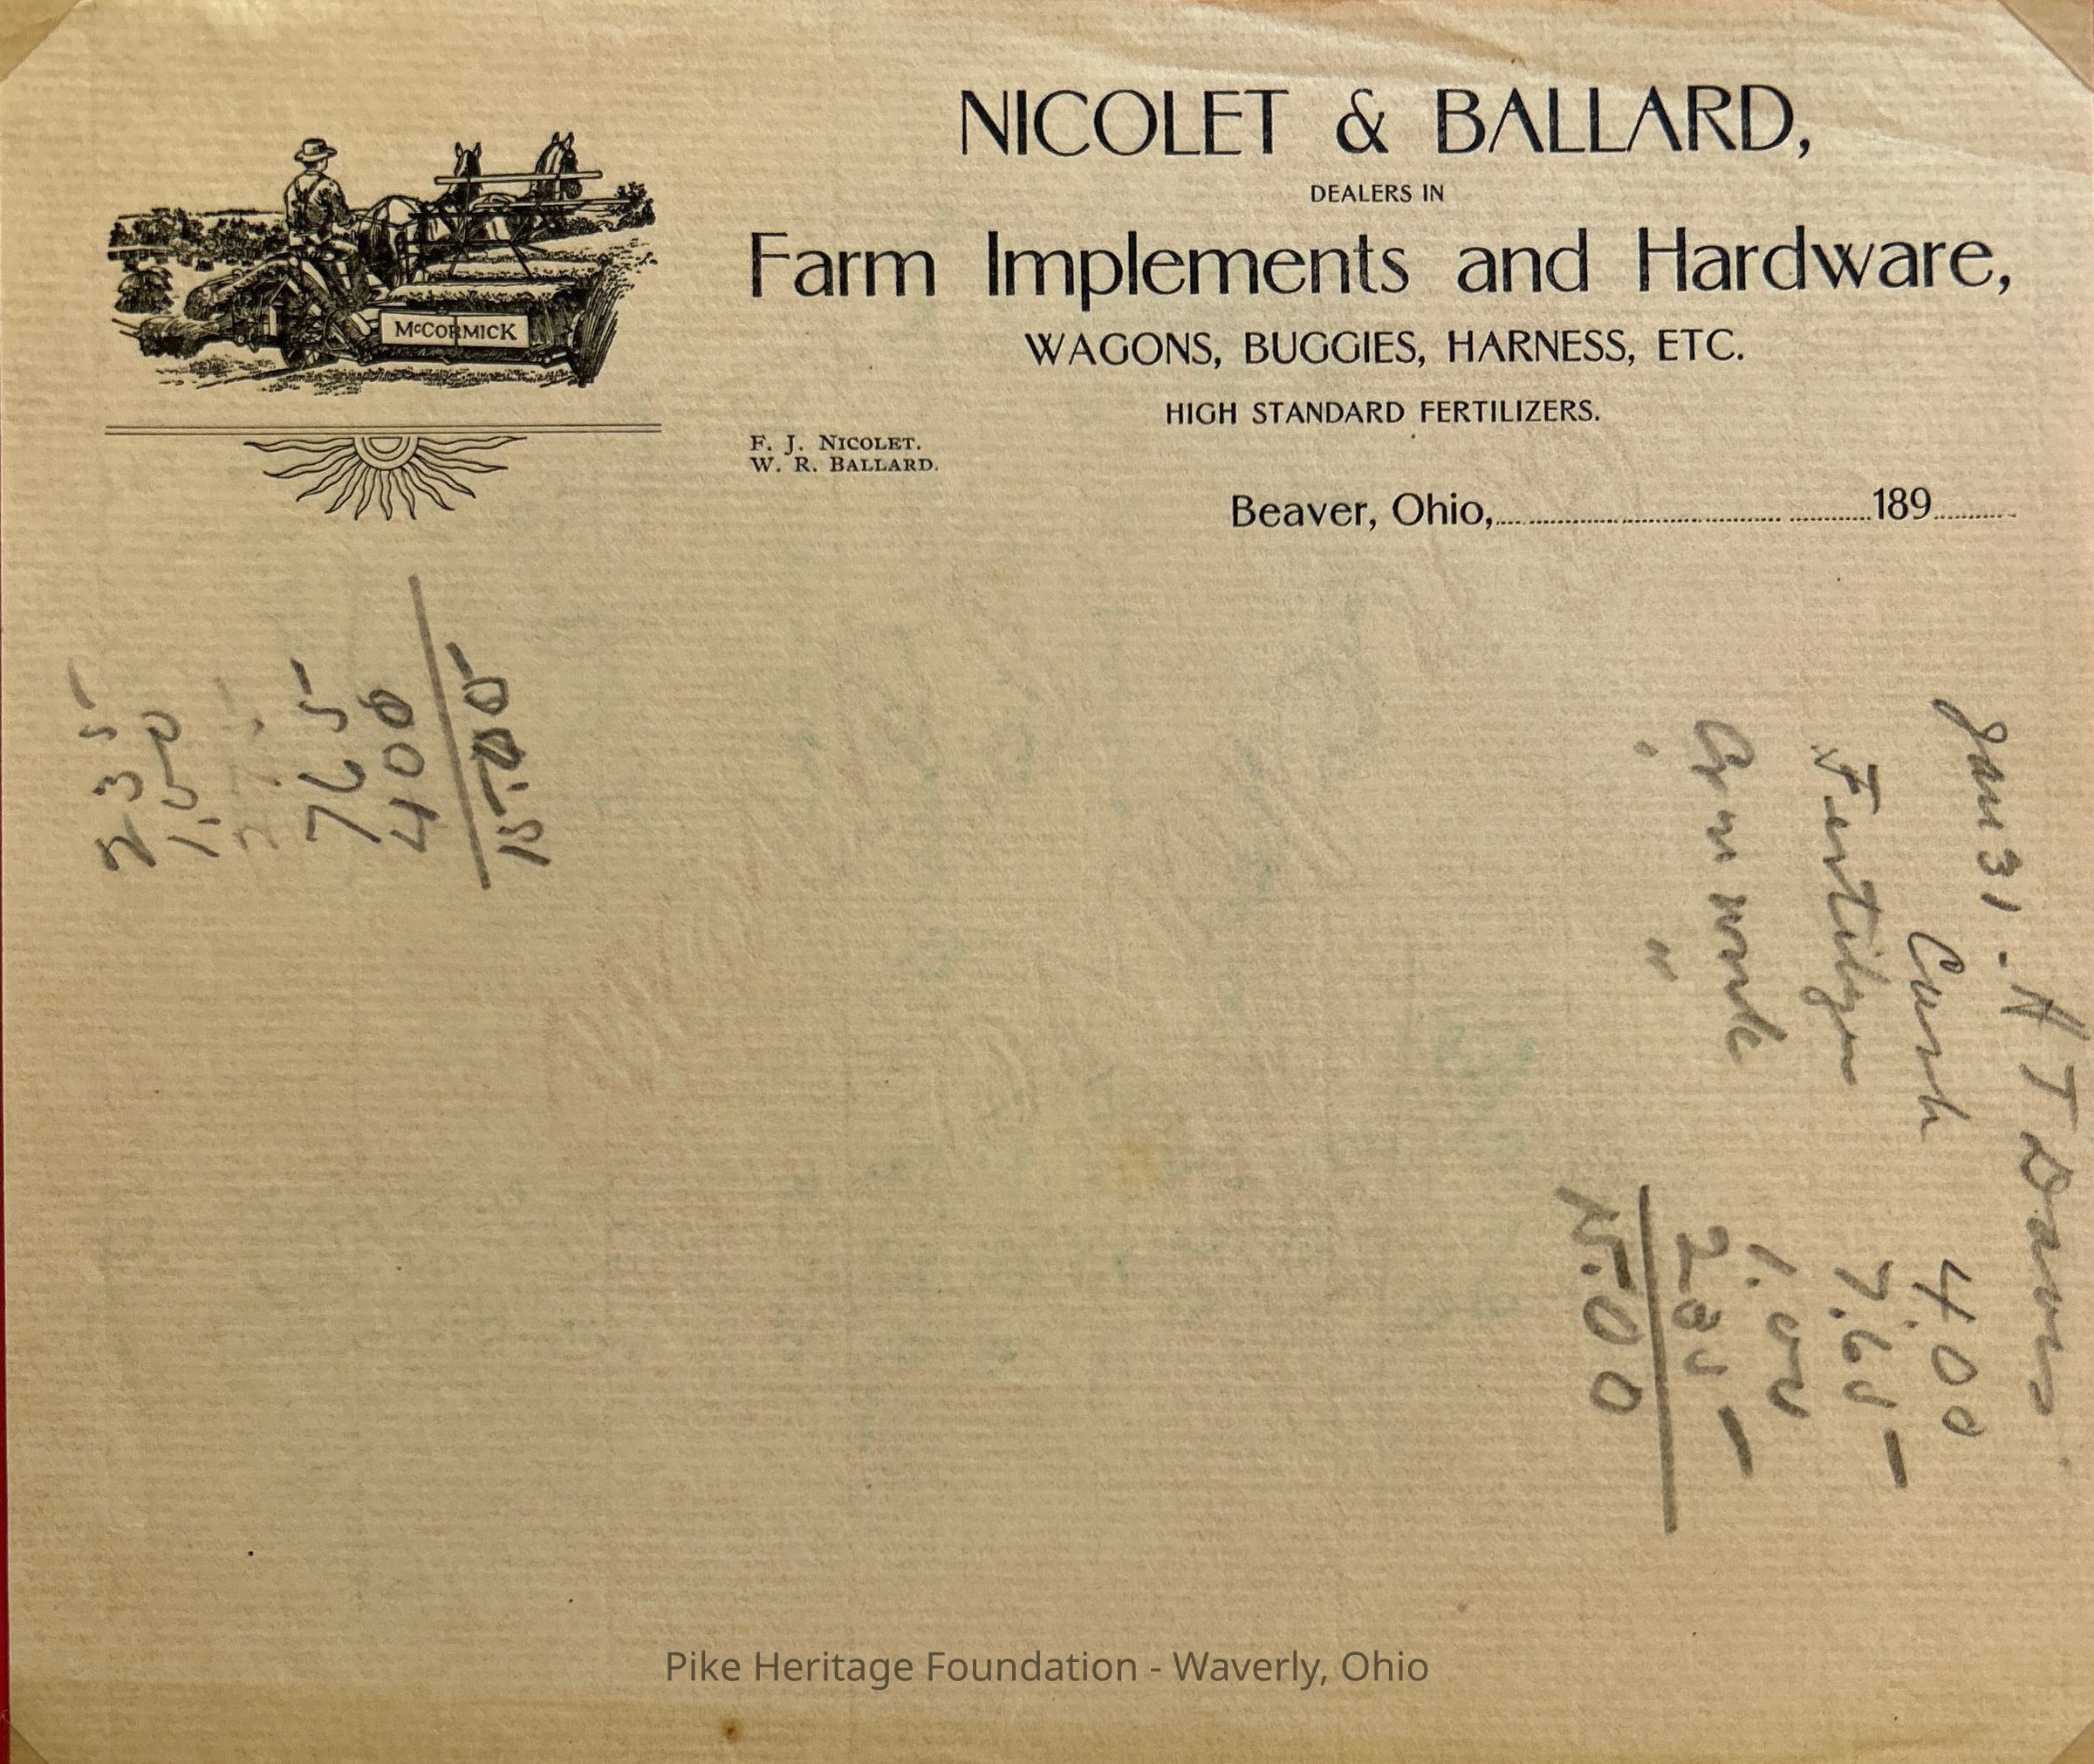 NICOLET & BALLARD,
DEALERS IN
Farm Implements and Hardware,
WAGONS, BUGGIES, HARNESS, ETC.
HIGH STANDARD FERTILIZERS.
McCORMICK
F. J. NICOLET.
W. R. BALLARD.
Beaver, Ohio, 189
Jan 31 - A T Davis
Cash 4.00
Fertilizer 7.65
work 1.00
" "
15.00
2 35
1.00
7 65
4 00
15.00
Pike Heritage Foundation - Waverly, Ohio